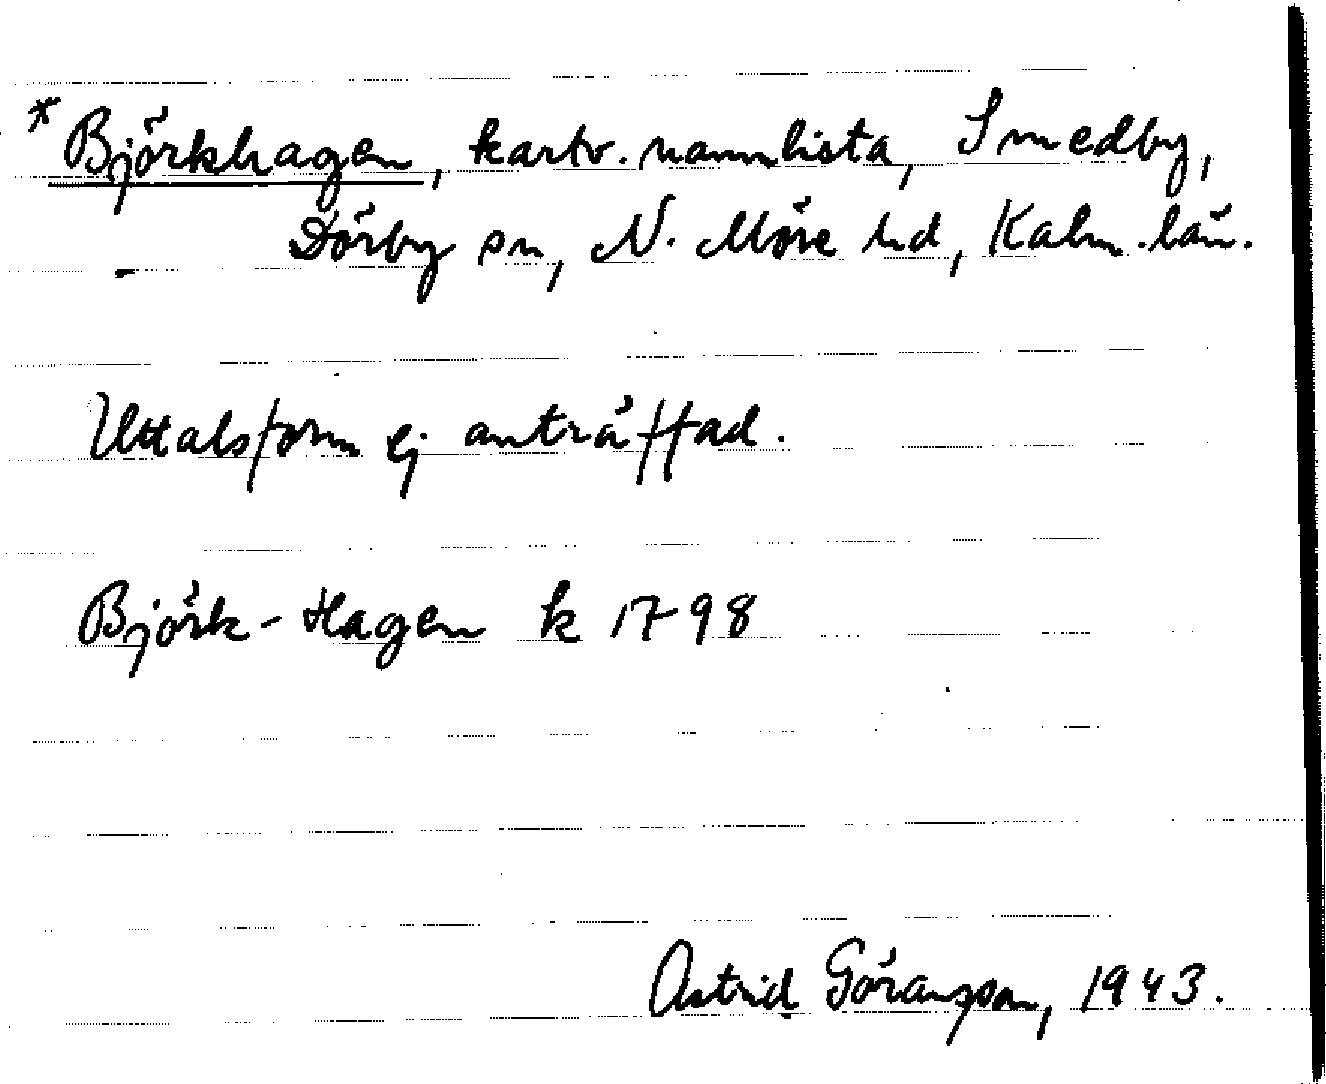 * Björkhagen, kartv. namnlista, Smedby,
Dörby sn, N. Möre hd, Kalm. län.
Uttalsform ej anträffad.
Björk-Hagen k 1798
Astrid Göransson, 1943.